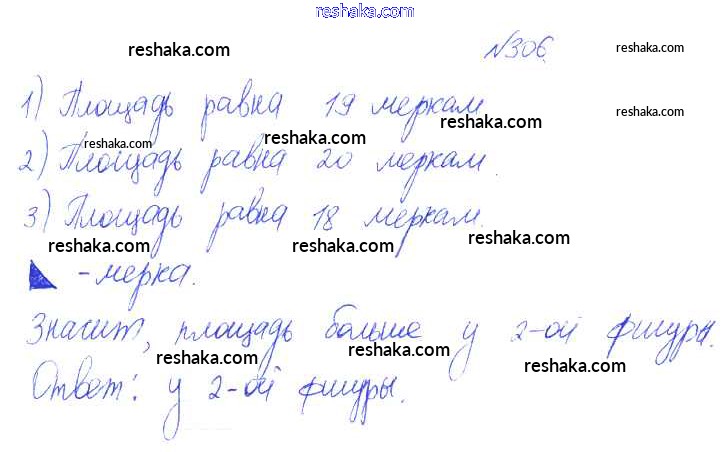 reshaka.com
№306.
reshaka.com reshaka.com
1) Площадь равна 19 меркам
reshaka.com reshaka.com
reshaka.com reshaka.com
2) Площадь равна 20 меркам.
reshaka.com
3) Площадь равна 18 меркам.
reshaka.com reshaka.com reshaka.com
- мерка.
Значит, площадь больше у 2-ой фигуры.
reshaka.com reshaka.com reshaka.com
Ответ: у 2-ой фигуры.